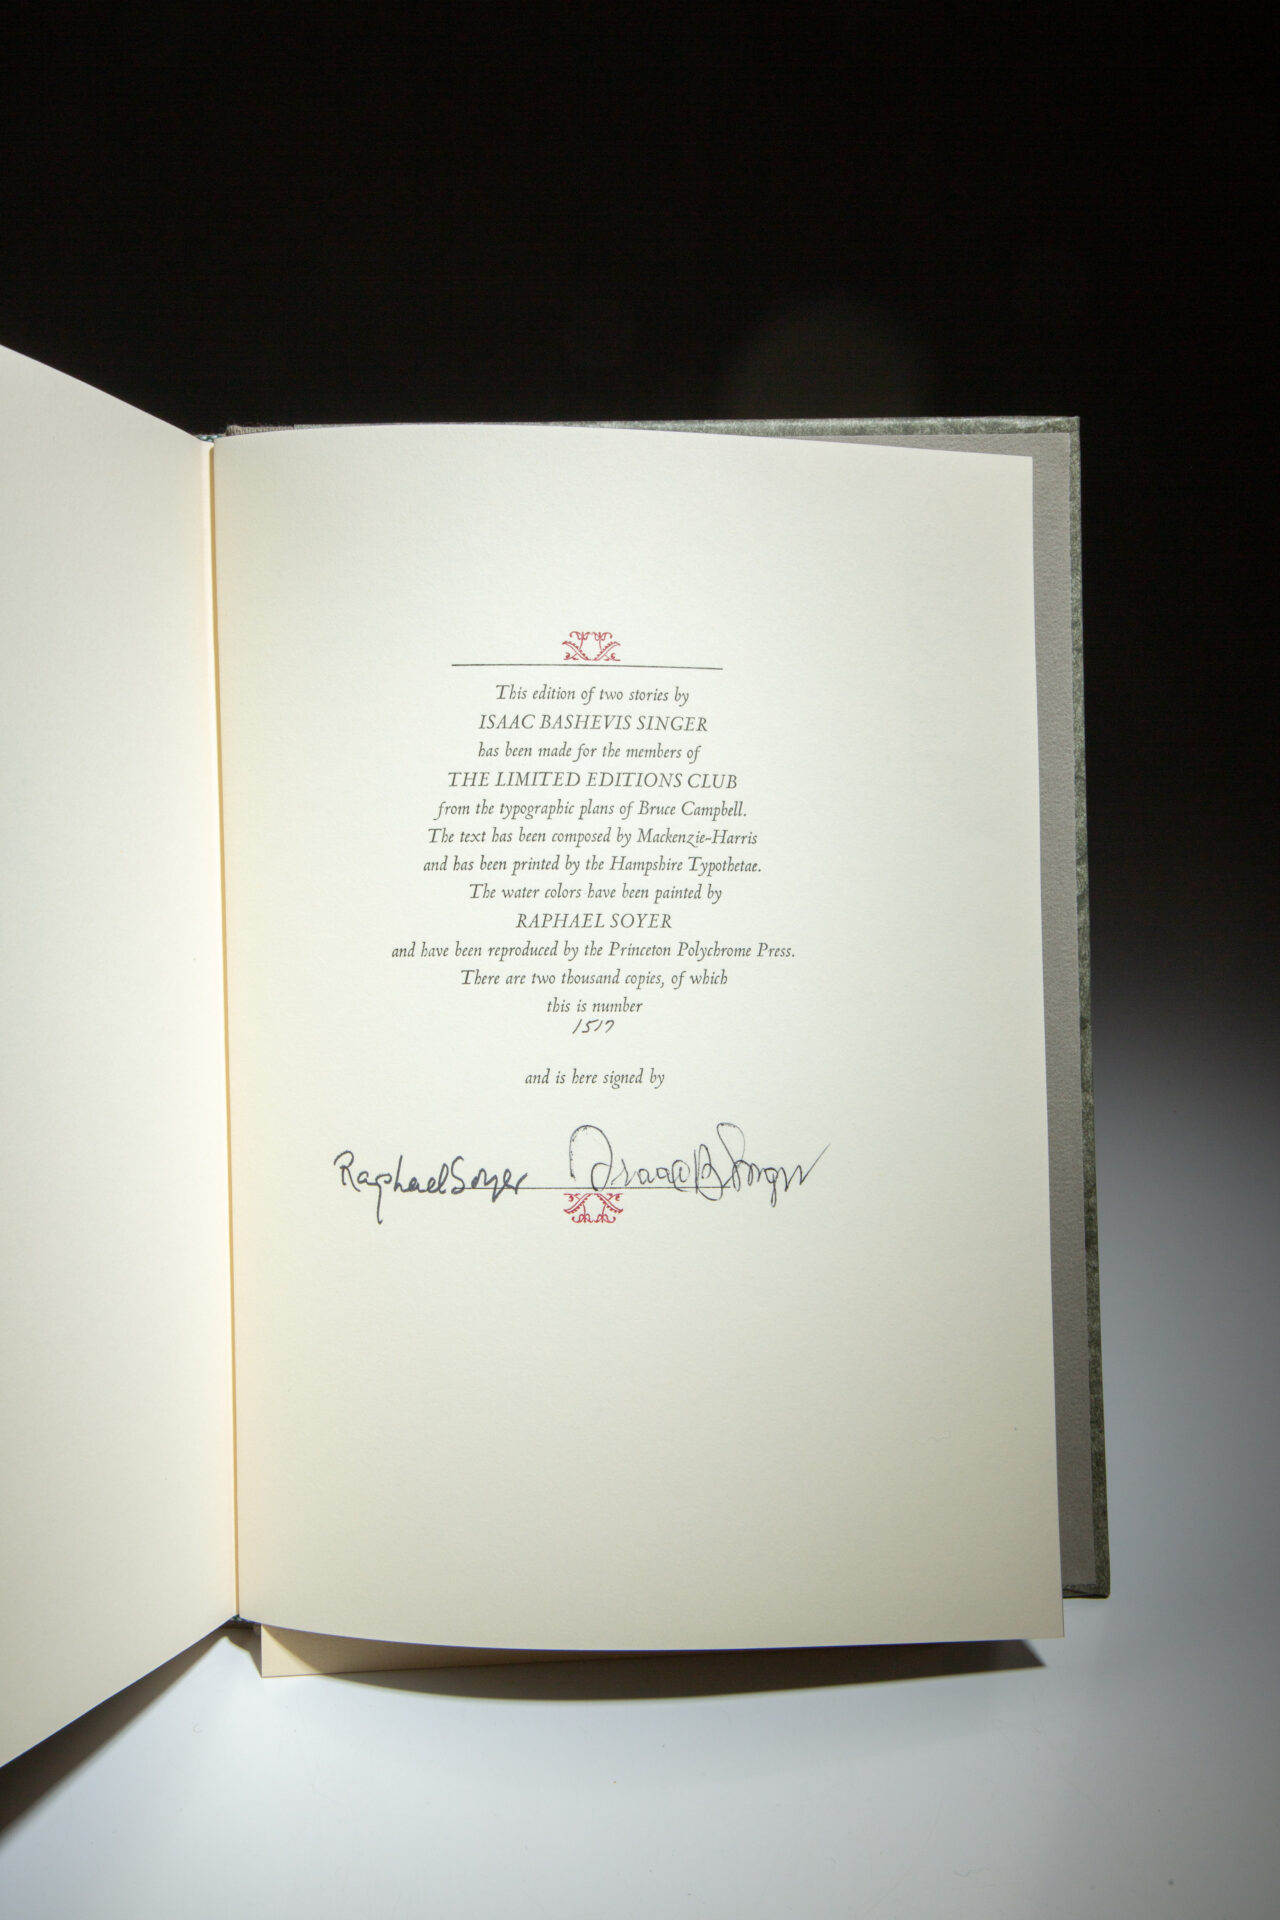 This edition of two stories by
ISAAC BASHEVIS SINGER
has been made for the members of
THE LIMITED EDITIONS CLUB
from the typographic plans of Bruce Campbell.
The text has been composed by Mackenzie-Harris
and has been printed by the Hampshire Typothetae.
The water colors have been painted by
RAPHAEL SOYER
and have been reproduced by the Princeton Polychrome Press.
There are two thousand copies, of which
this is number
1517
and is here signed by
Raphael Soyer Isaac B Singer